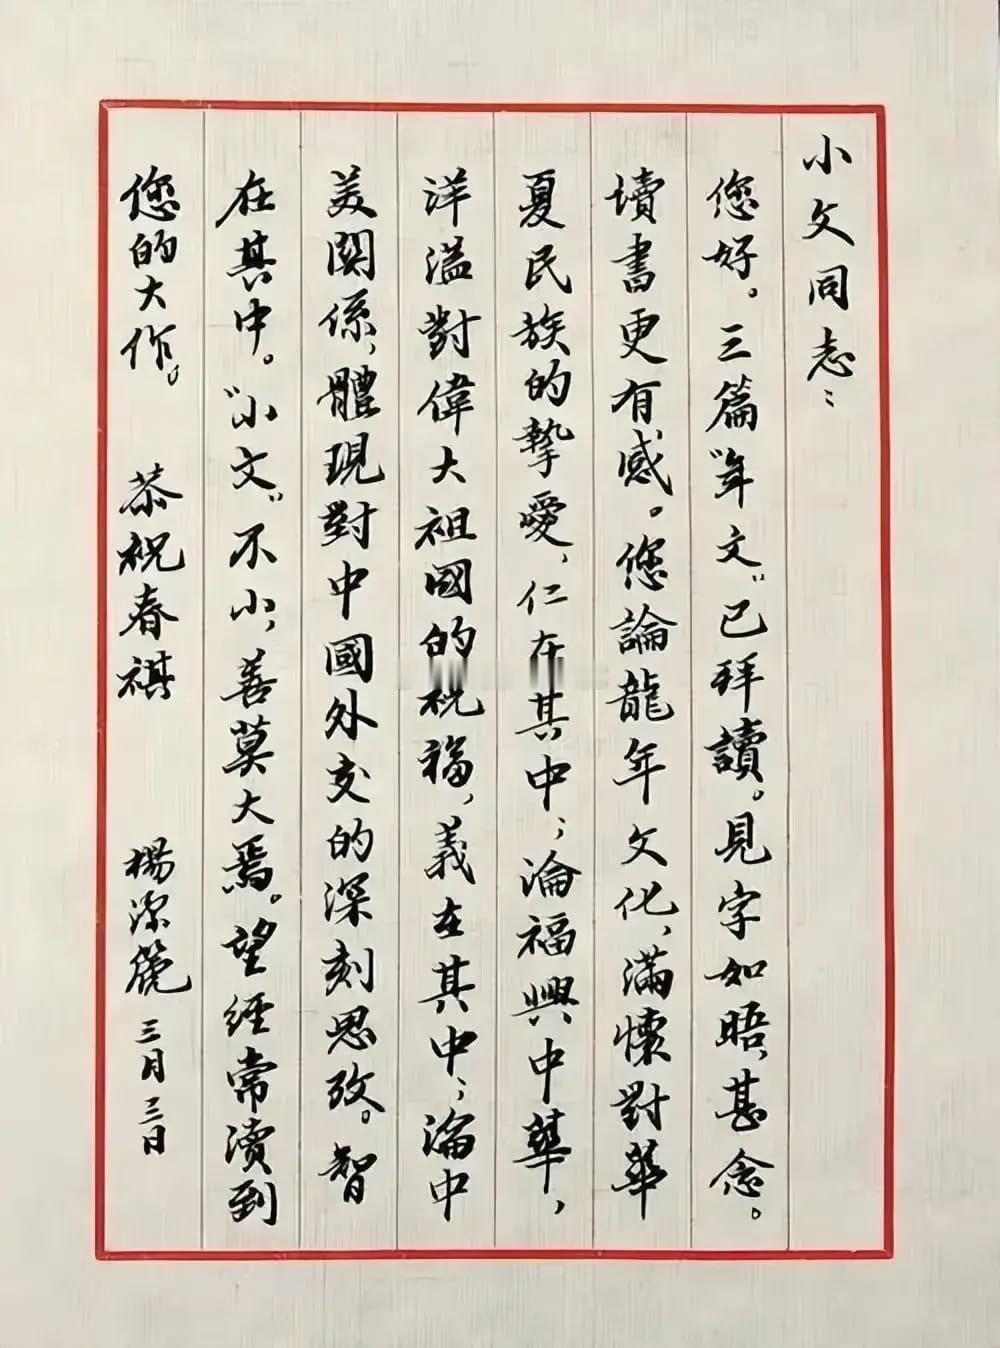 小文同志：
您好。三篇“年文”已拜讀。見字如晤，甚念。
讀書更有感。您論龍年文化，滿懷對華
夏民族的摯愛，仁在其中；論福興中華，
洋溢對偉大祖國的祝福，義在其中；論中
美関係，體現對中國外交的深刻思攷。智
在其中。“小文”不小，善莫大焉。望經常讀到
您的大作。 恭祝春祺 楊潔篪 三月三日